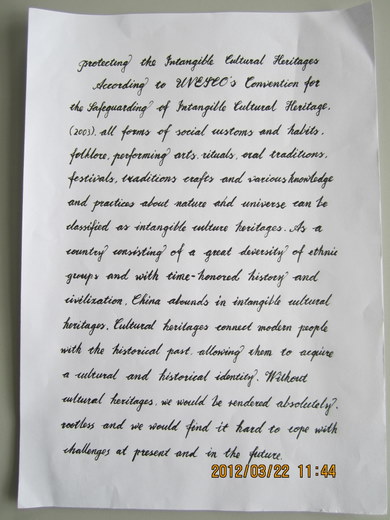 protecting the Intangible Cultural Heritages
According to UNESCO's Convention for
the Safeguarding of Intangible Cultural Heritage.
(2003), all forms of social customs and habits,
folklore, performing arts, rituals, oral traditions,
festivals, traditions crafts and various knowledge
and practices about nature and universe can be
classified as intangible culture heritages. As a
country consisting of a great deversity of ethnic
groups and with time-honored history and
civilization, China abounds in intangible cultural
heritages. Cultural heritages connect modern people
with the historical past, allowing them to acquire
a cultural and historical identity. Without
cultural heritages, we would be rendered absolutely,
rootless and we would find it hard to cope with
challenges at present and in the future.
2012/03/22 11:44